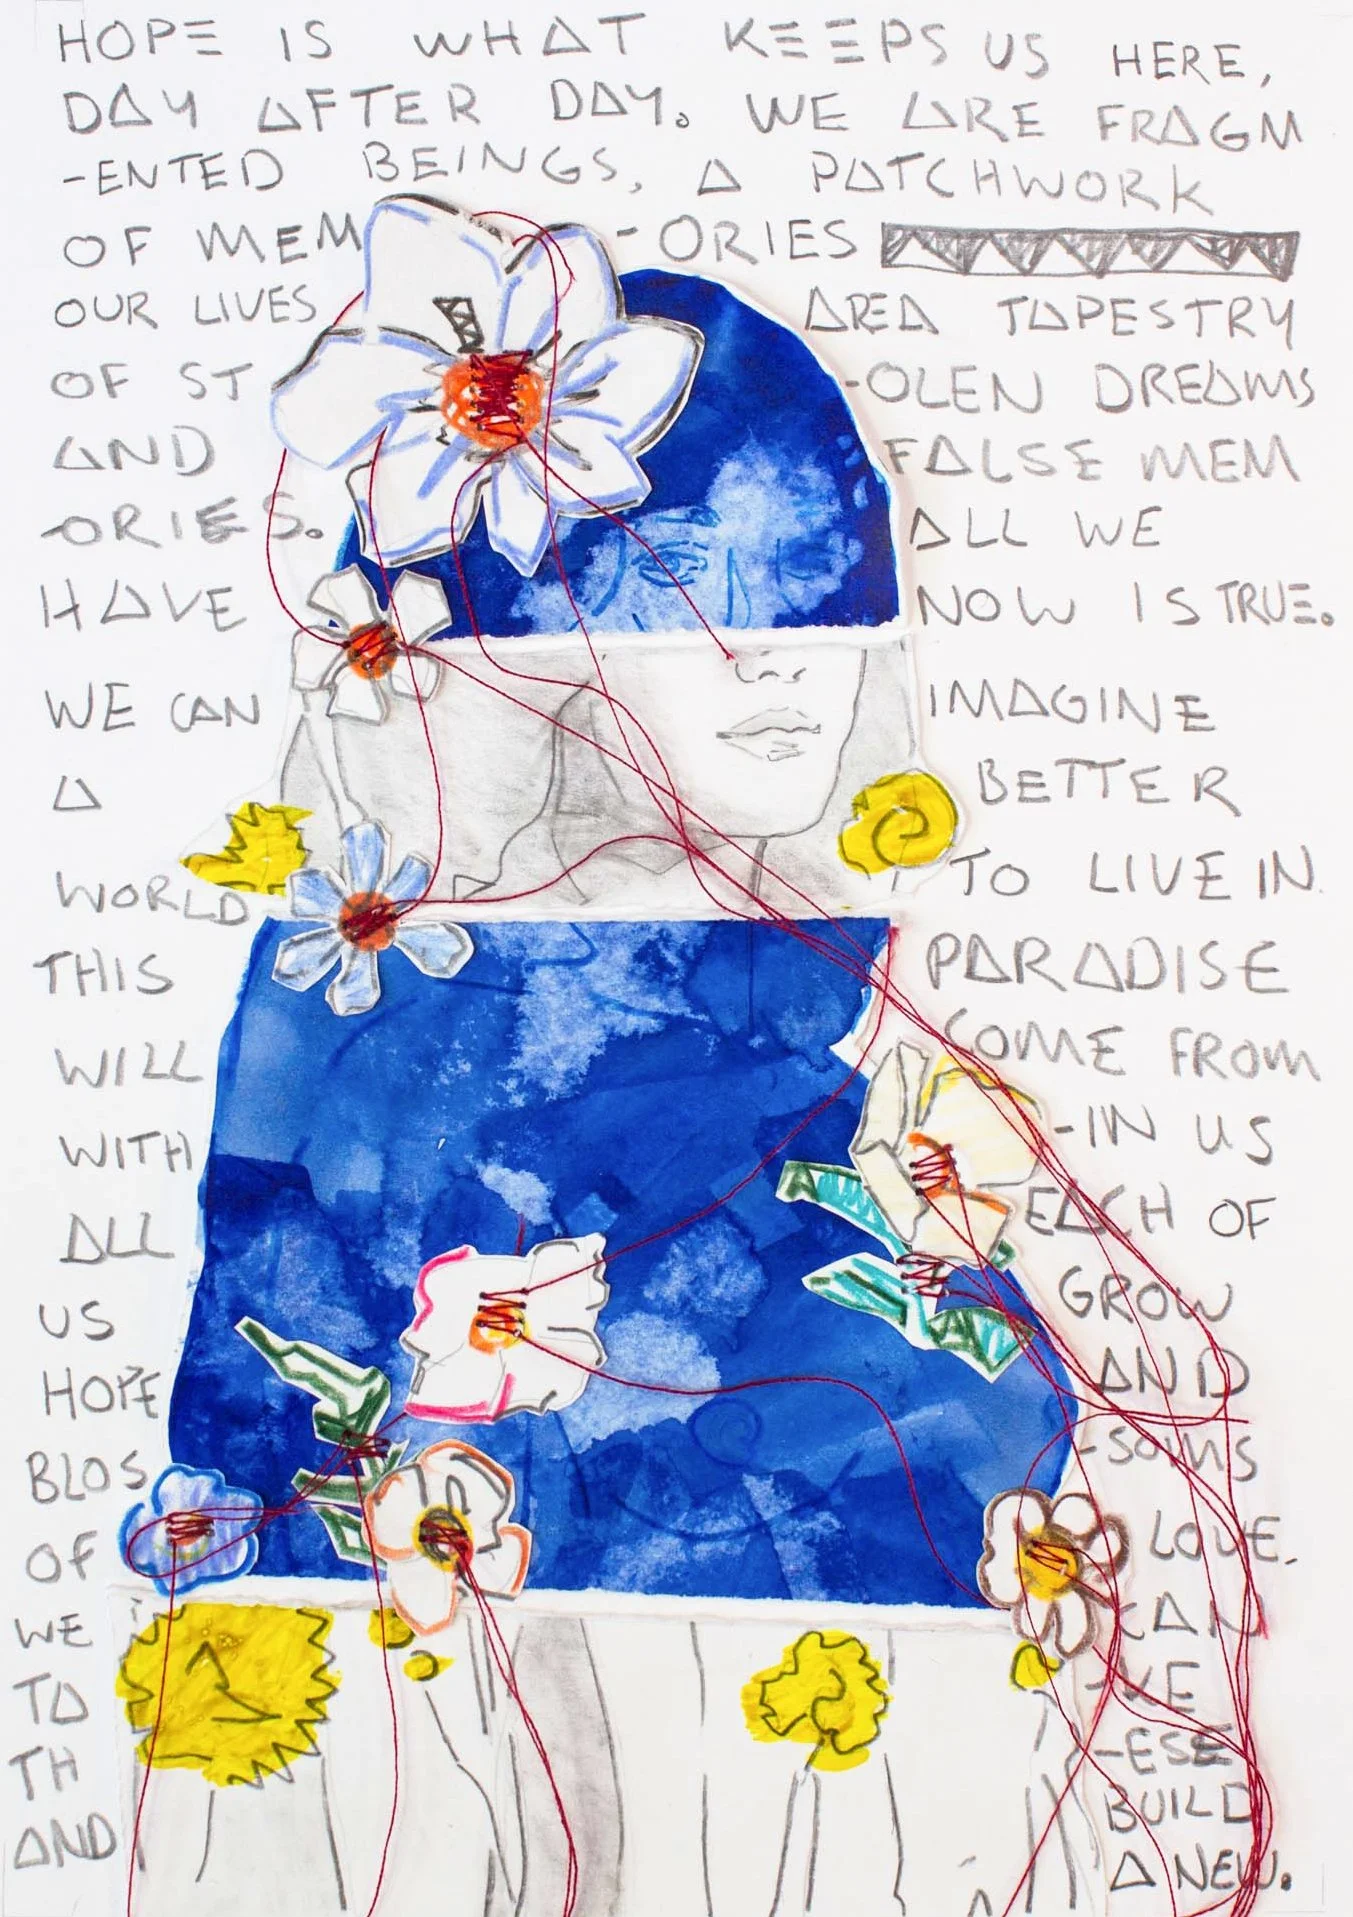 HOPE IS WHAT KEEPS US HERE,
DAY AFTER DAY. WE ARE FRAGM
-ENTED BEINGS, A PATCHWORK
OF MEM -ORIES
OUR LIVES AREA TAPESTRY
OF ST -OLEN DREAMS
AND FALSE MEM
-ORIES. ALL WE
HAVE NOW IS TRUE.
WE CAN IMAGINE
A BETTER
WORLD TO LIVE IN.
THIS PARADISE
WILL COME FROM
WITH -IN US
ALL EACH OF
US GROW
HOPE AND
BLOS -SOMS
OF LOVE.
WE CAN
TA -KE
TH -ESE
AND BUILD
A NEW.